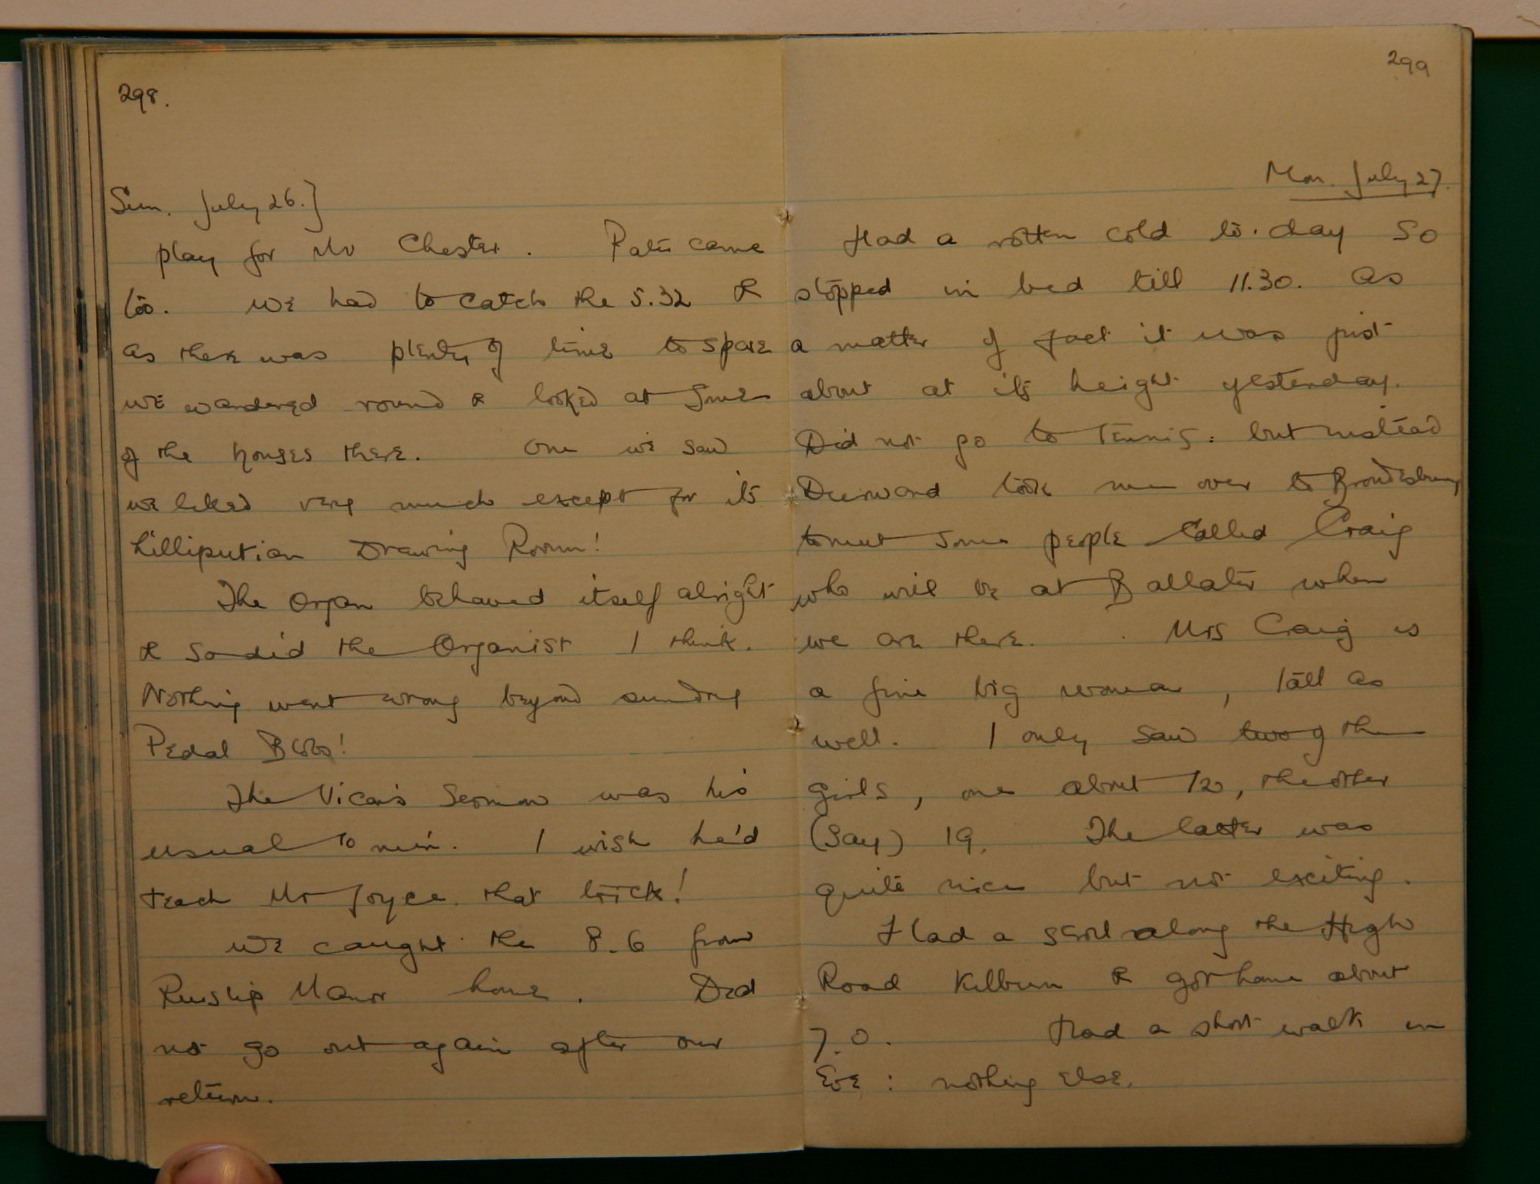 298.
Sun. July 26.]
play for Mr Chester. Patü came
too. We had to catch the 5.32 &
as there was plenty of time to spare
we wandered round & looked at some
of the houses there. One we saw
we liked very much except for its
Lilliputian Drawing Room!
The Organ behaved itself alright
& so did the Organist I think.
Nothing went wrong beyond sundry
Pedal Blobs!
The Vicar's Sermon was his
usual 10 min. I wish he'd
teach Mr Joyce that trick!
We caught the 8.6 from
Ruislip Manor home. Did
not go out again after our
return.
299
Mon. July 27.
Had a rotten cold to-day so
stopped in bed till 11.30. As
a matter of fact it was just
about at its height yesterday.
Did not go to Tennis: but instead
Durward took me over to Brondesbury
to meet some people called Craig
who will be at Ballater when
we are there. Mrs Craig is
a fine big woman, tall as
well. I only saw two of the
girls, one about 12, the other
(say) 19. The latter was
quite nice but not exciting.
Had a stroll along the High
Road Kilburn & got home about
7.0. Had a short walk in
Eve: nothing else.